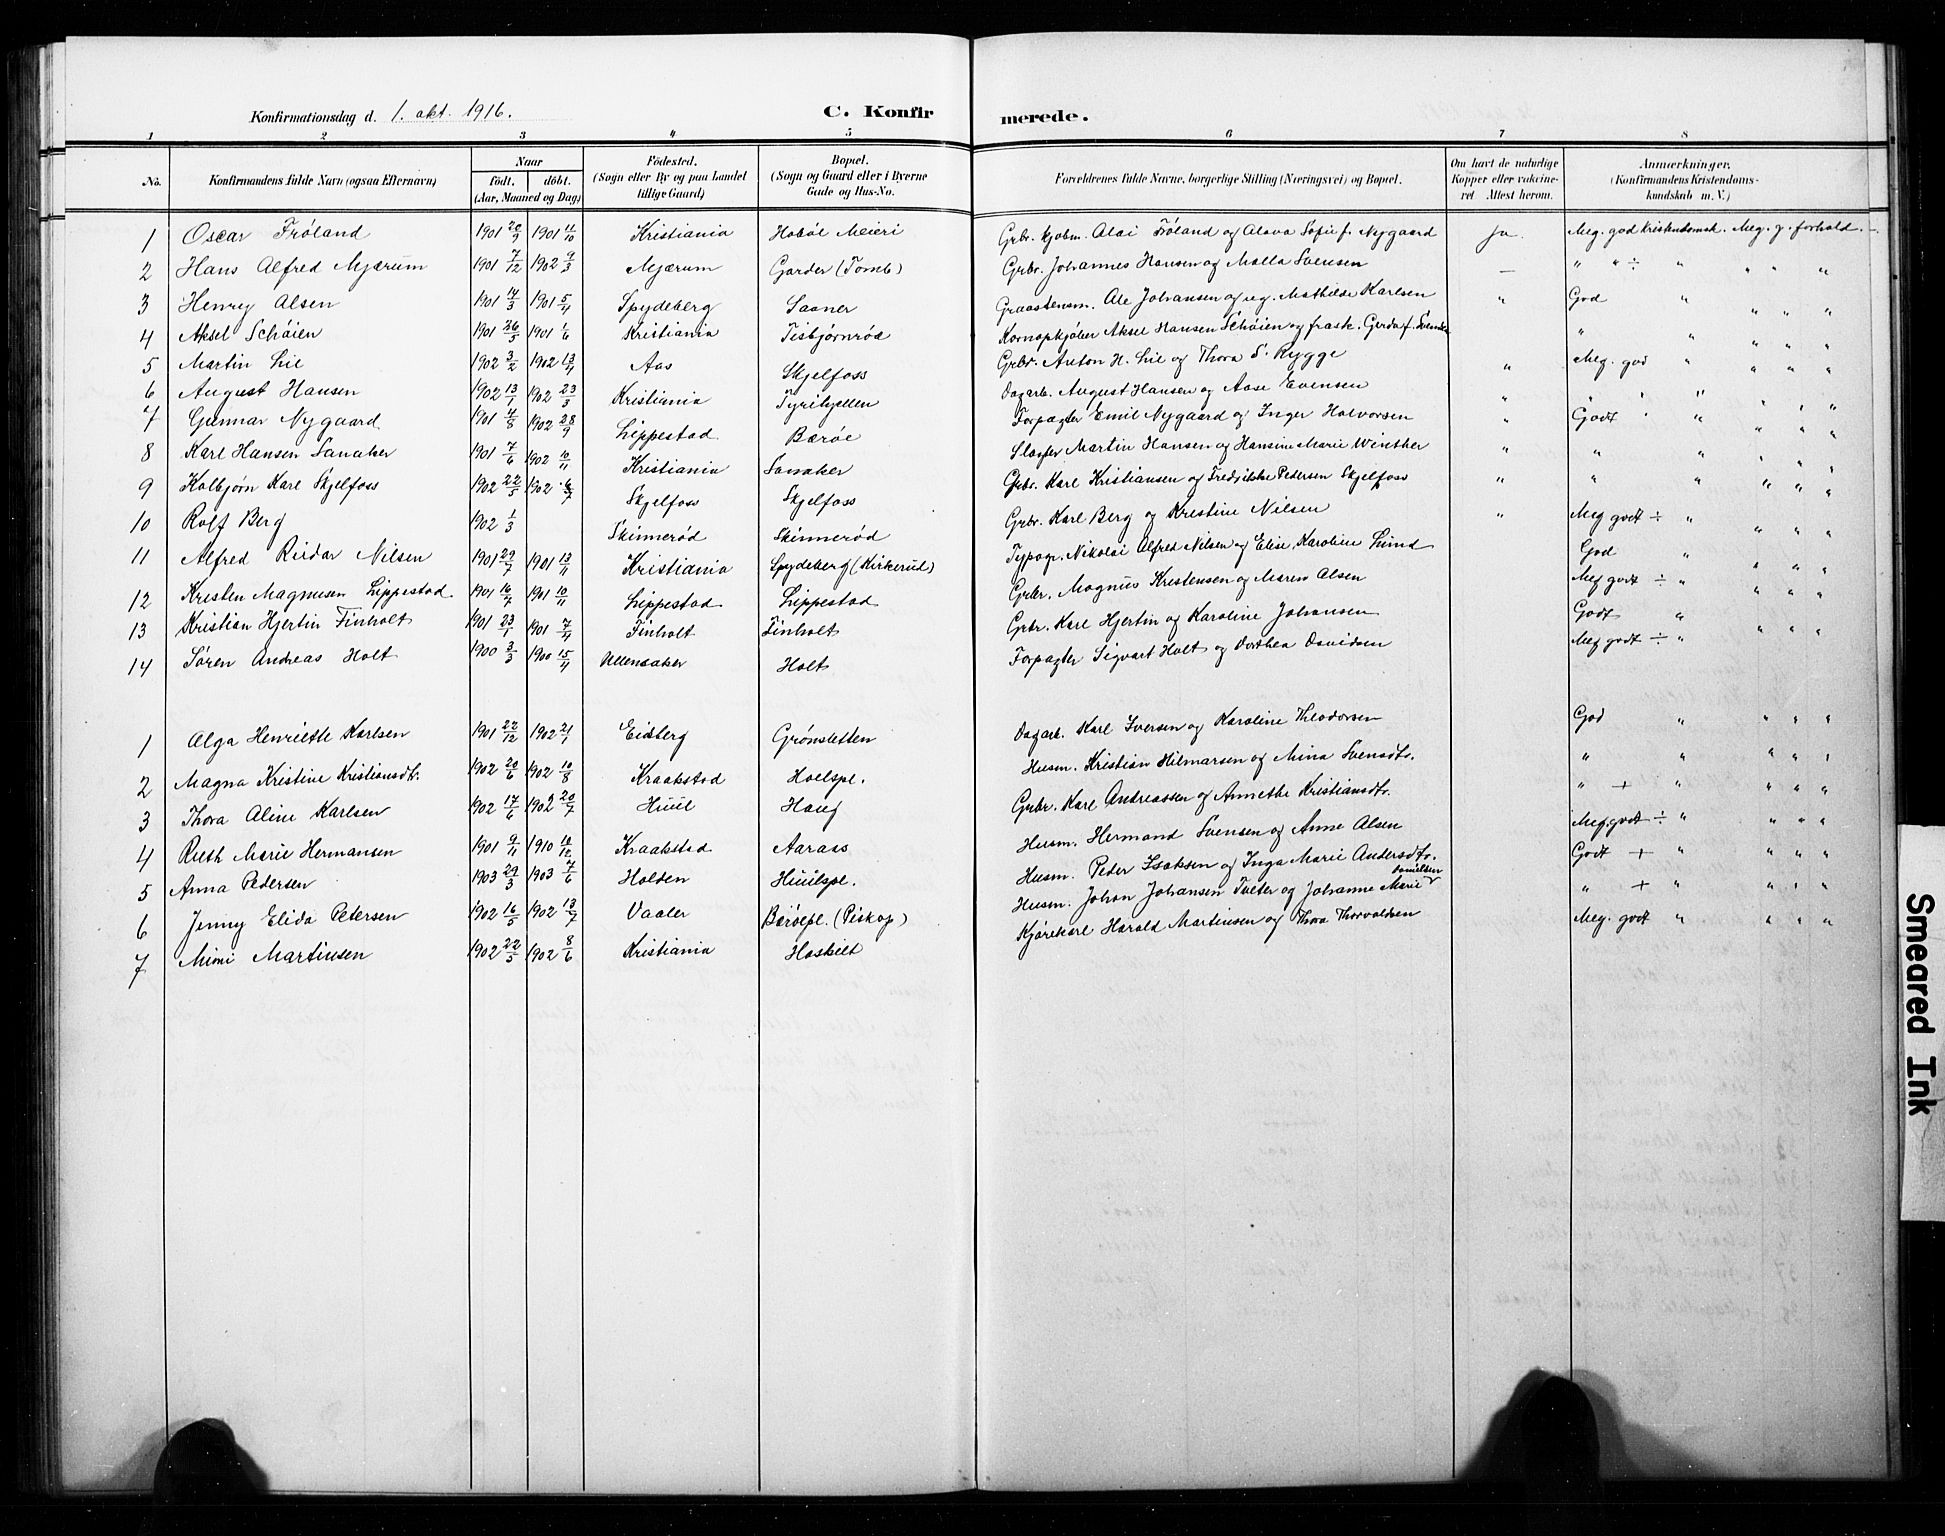 Konfirmationsdag d. 1. okt. 1916. C. Konfirmerede.
1 2 3 4 5 6 7 8
No. Konfirmandens fulde Navn (ogsaa Efternavn) Naar født. døbt. (Aar, Maaned og Dag) Fødested. (Sogn eller By og paa Landet tillige Gaard) Bopæl. (Sogn og Gaard eller i Byerne Gade og Hus-No. Forældrenes fulde Navne, borgerlige Stilling (Næringsvei) og Bopæl. Om havt de naturlige Kopper eller vakcineret Attest herom. Anmærkninger. (Konfirmandens Kristendomskundskab m. V.)
1 Oscar Frøland 1901 20/9 1901 11/10 Kristiania Hobøl Meieri Grbr. kjøbm. Olai Frøland og Olava Sofie f. Nygaard Ja. Meg. god Kristendomsk. Meg. g. forhold.
2 Hans Alfred Mjærum 1901 7/12 1902 9/3 Mjærum Garder (Tomb) Grbr. Johannes Hansen og Malla Svensen — " " ÷ " " " "
3 Henry Olsen 1901 14/3 1901 5/4 Spydeberg Saaner Graastensm. Ole Johansen og ug. Mathilde Karlsen " God " " " "
4 Aksel Schøien 1901 26/5 1901 1/6 Kristiania Tisbjørnrød Kornopkjøber Aksel Hansen Schøien og frask. Gerda f. Svendsen " " " " "
5 Martin Lie 1902 3/2 1902 13/4 Aas Skjelfoss Grbr. Anton H. Lie og Thora S. Rygge " Meg. god " " " "
6 August Hansen 1902 13/1 1902 23/3 Kristiania Tyrihjellen Dagarb. August Hansen og Aase Evensen " " " " " " "
7 Gunnar Nygaard 1901 4/8 1902 28/9 Lippestad Bærøe Forpagter Emil Nygaard og Inger Halvorsen " Godt " " " " "
8 Karl Hansen Sanaker 1901 7/6 1902 10/11 Kristiania Sanaker Martin Hansen og Hansine Marie Winther " " " " " "
9 Kolbjørn Karl Skjelfoss 1902 22/5 1902 6/7 Skjelfoss Skjelfoss Grbr. Karl Kristiansen og Fredrikke Petersen Skjelfoss " " " " " "
10 Rolf Berg 1902 1/3 Skinnerød Skinnerød Grbr. Karl Berg og Kristine Nilsen " Meg godt ÷ " " " "
11 Alfred Reidar Nilsen 1901 29/7 1901 13/11 Kristiania Spydeberg (Kirkerud) Typogr. Nikolai Alfred Nilsen og Elise Karoline Lund God " " " "
12 Kristen Magnusen Lippestad 1901 16/7 1901 10/11 Lippestad Lippestad Grbr. Magnus Kristensen og Maren Olsen Meg godt ÷ " " " "
13 Kristian Hjertin Finholt 1901 23/1 1901 7/4 Finholt Finholt Grbr. Karl Hjertin og Karoline Johansen Godt " " " "
14 Søren Andreas Holt 1900 3/3 1900 15/4 Ullensaker Holt Forpagter Sigvart Holt og Dorthea Davidsen Meg godt ÷ "
1 Olga Henriette Karlsen 1901 22/12 1902 21/1 Eidsberg Grønsletten Dagarb. Karl Iversen og Karoline Theodorsen God " " " "
2 Magna Kristine Kristiansdtr. 1902 20/6 1902 10/8 Kraakstad Hoelspl. Husm. Kristian Hilmarsen og Mina Svensdtr. " " " " "
3 Thora Aline Karlsen 1902 17/6 1902 20/7 Huul Haug Grbr. Karl Andreassen og Annethe Kristiansdtr. " + " " " "
4 Ruth Marie Hermansen 1901 9/11 1910 10/12 Kraakstad Aaraas Husm. Hermand Svensen og Anne Olsen Meg. godt ÷ " " " "
5 Anna Pedersen 1903 29/3 1903 7/6 Holden Huulspl. Husm. Peder Isaksen og Inga Marie Andersdtr. Godt + " " " "
6 Jenny Elida Petersen 1902 16/5 1902 13/7 Vaaler Bærøepl. (Piskop) Husm. Johan Johansen Tveter og Johanne Marie Danielsen " + " " " "
7 Mimi Martinsen 1902 22/5 1902 8/6 Kristiania Haskilt Kjørekarl Harald Martinsen og Thora Thorvaldsen Meg. godt " " " "
Smeared Ink